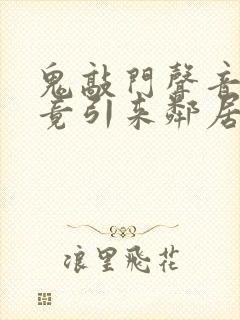 鬼敲門聲音
竟引来鄰居
浪里飛花